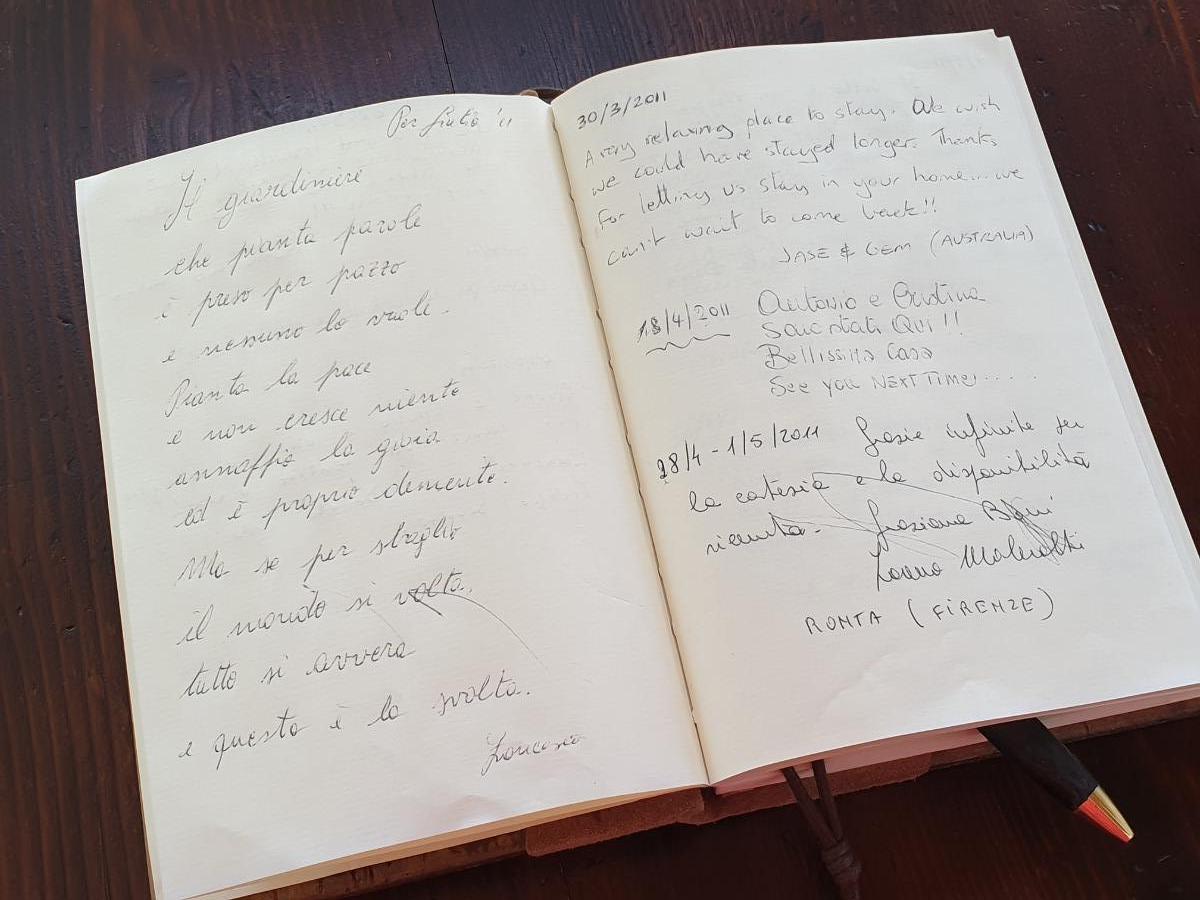 Per Giulio '11
Il giardiniere
che pianta parole
è preso per pazzo
e nessuno lo vuole.
Pianta la pace
e non cresce niente
annaffia la gioia
ed è proprio demente.
Ma se per sbaglio
il mondo si volta,
tutto si avvera
e questa è la svolta.
30/3/2011
A very relaxing place to stay. We wish
we could have stayed longer. Thanks
for letting us stay in your home... we
can't wait to come back!!
JASE & GEM (AUSTRALIA)
18/4/2011 Antonio e Cristina
Qui!!
Bellissima Casa
See you Next Time.....
28/4 - 1/5/2011 Grazie infinite per
la cortesia e la disponibilità
Graziana
RONTA (FIRENZE)